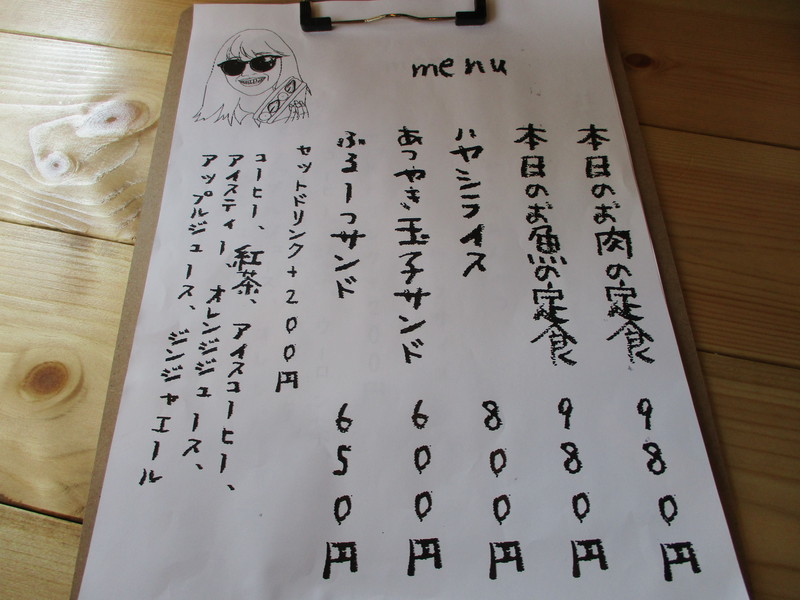 menu
本日のお肉の定食 980円
本日のお魚の定食 980円
ハヤシライス 800円
あつやき玉子サンド 600円
ふるーつサンド 650円
セットドリンク+200円
コーヒー、紅茶、アイスコーヒー、
アイスティー、オレンジジュース、
アップルジュース、ジンジャエール